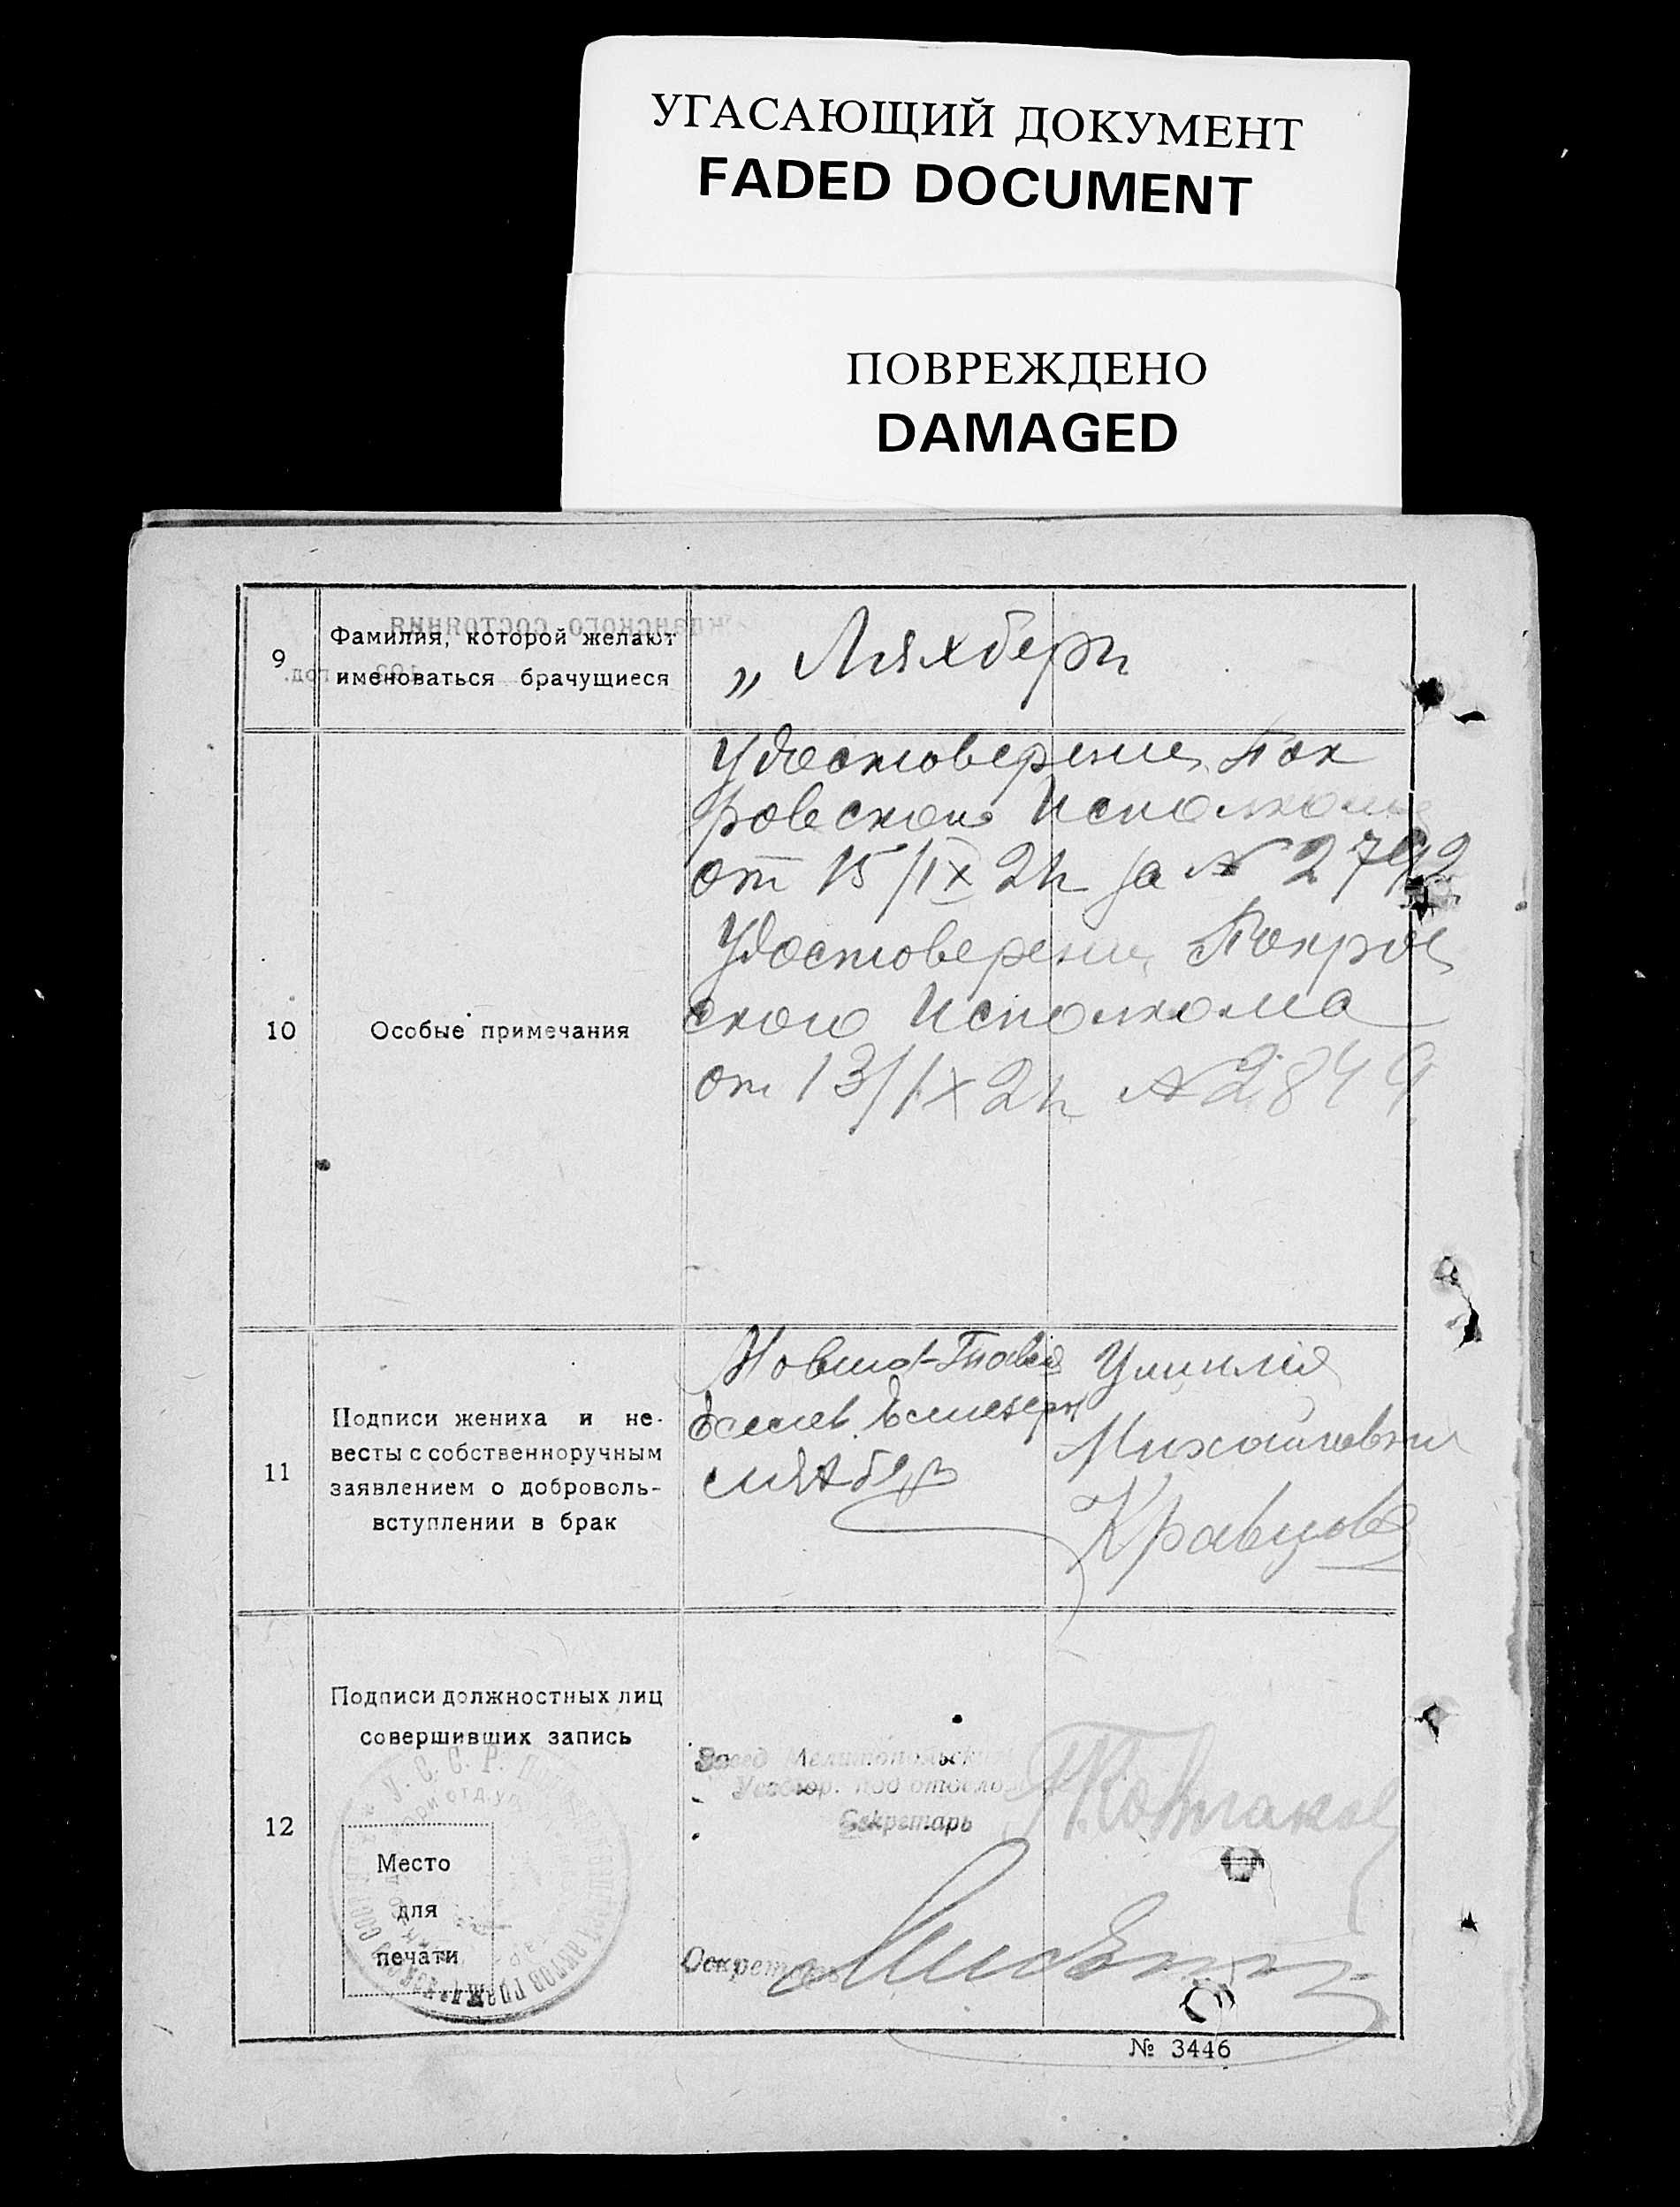 УГАСАЮЩИЙ ДОКУМЕНТ
FADED DOCUMENT
ПОВРЕЖДЕНО
DAMAGED
9
Фамилия, которой желают
именоваться брачущиеся
„ Ляхберг
10
Особые примечания
Удостоверение Пок
ровского Исполкома
от 15/IX 24 за № 2792
Удостоверение Покров
ского Исполкома
от 13/IX 24 № 2849
11
Подписи жениха и не-
весты с собственноручным
заявлением о доброволь-
вступлении в брак
Михайловна
Кравцова
12
Подписи должностных лиц
совершивших запись
Место
для
печати
У. С. С. Р.
Завед Мелитопольским
под отделом
Секретарь
Секретарь
№ 3446